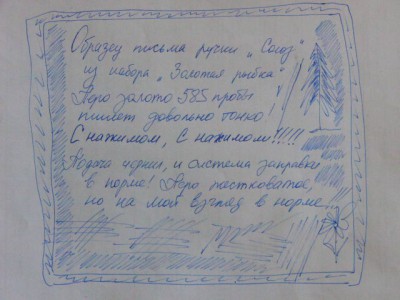 Образец письма ручки „Союз"
из набора „Золотая рыбка"
Перо золото 585 пробы
пишет довольно тонко!
С нажимом, С нажимом!!!!!
Подача чернил, и система заправки
в норме! Перо жестковатое,
но на мой взгляд в норме!